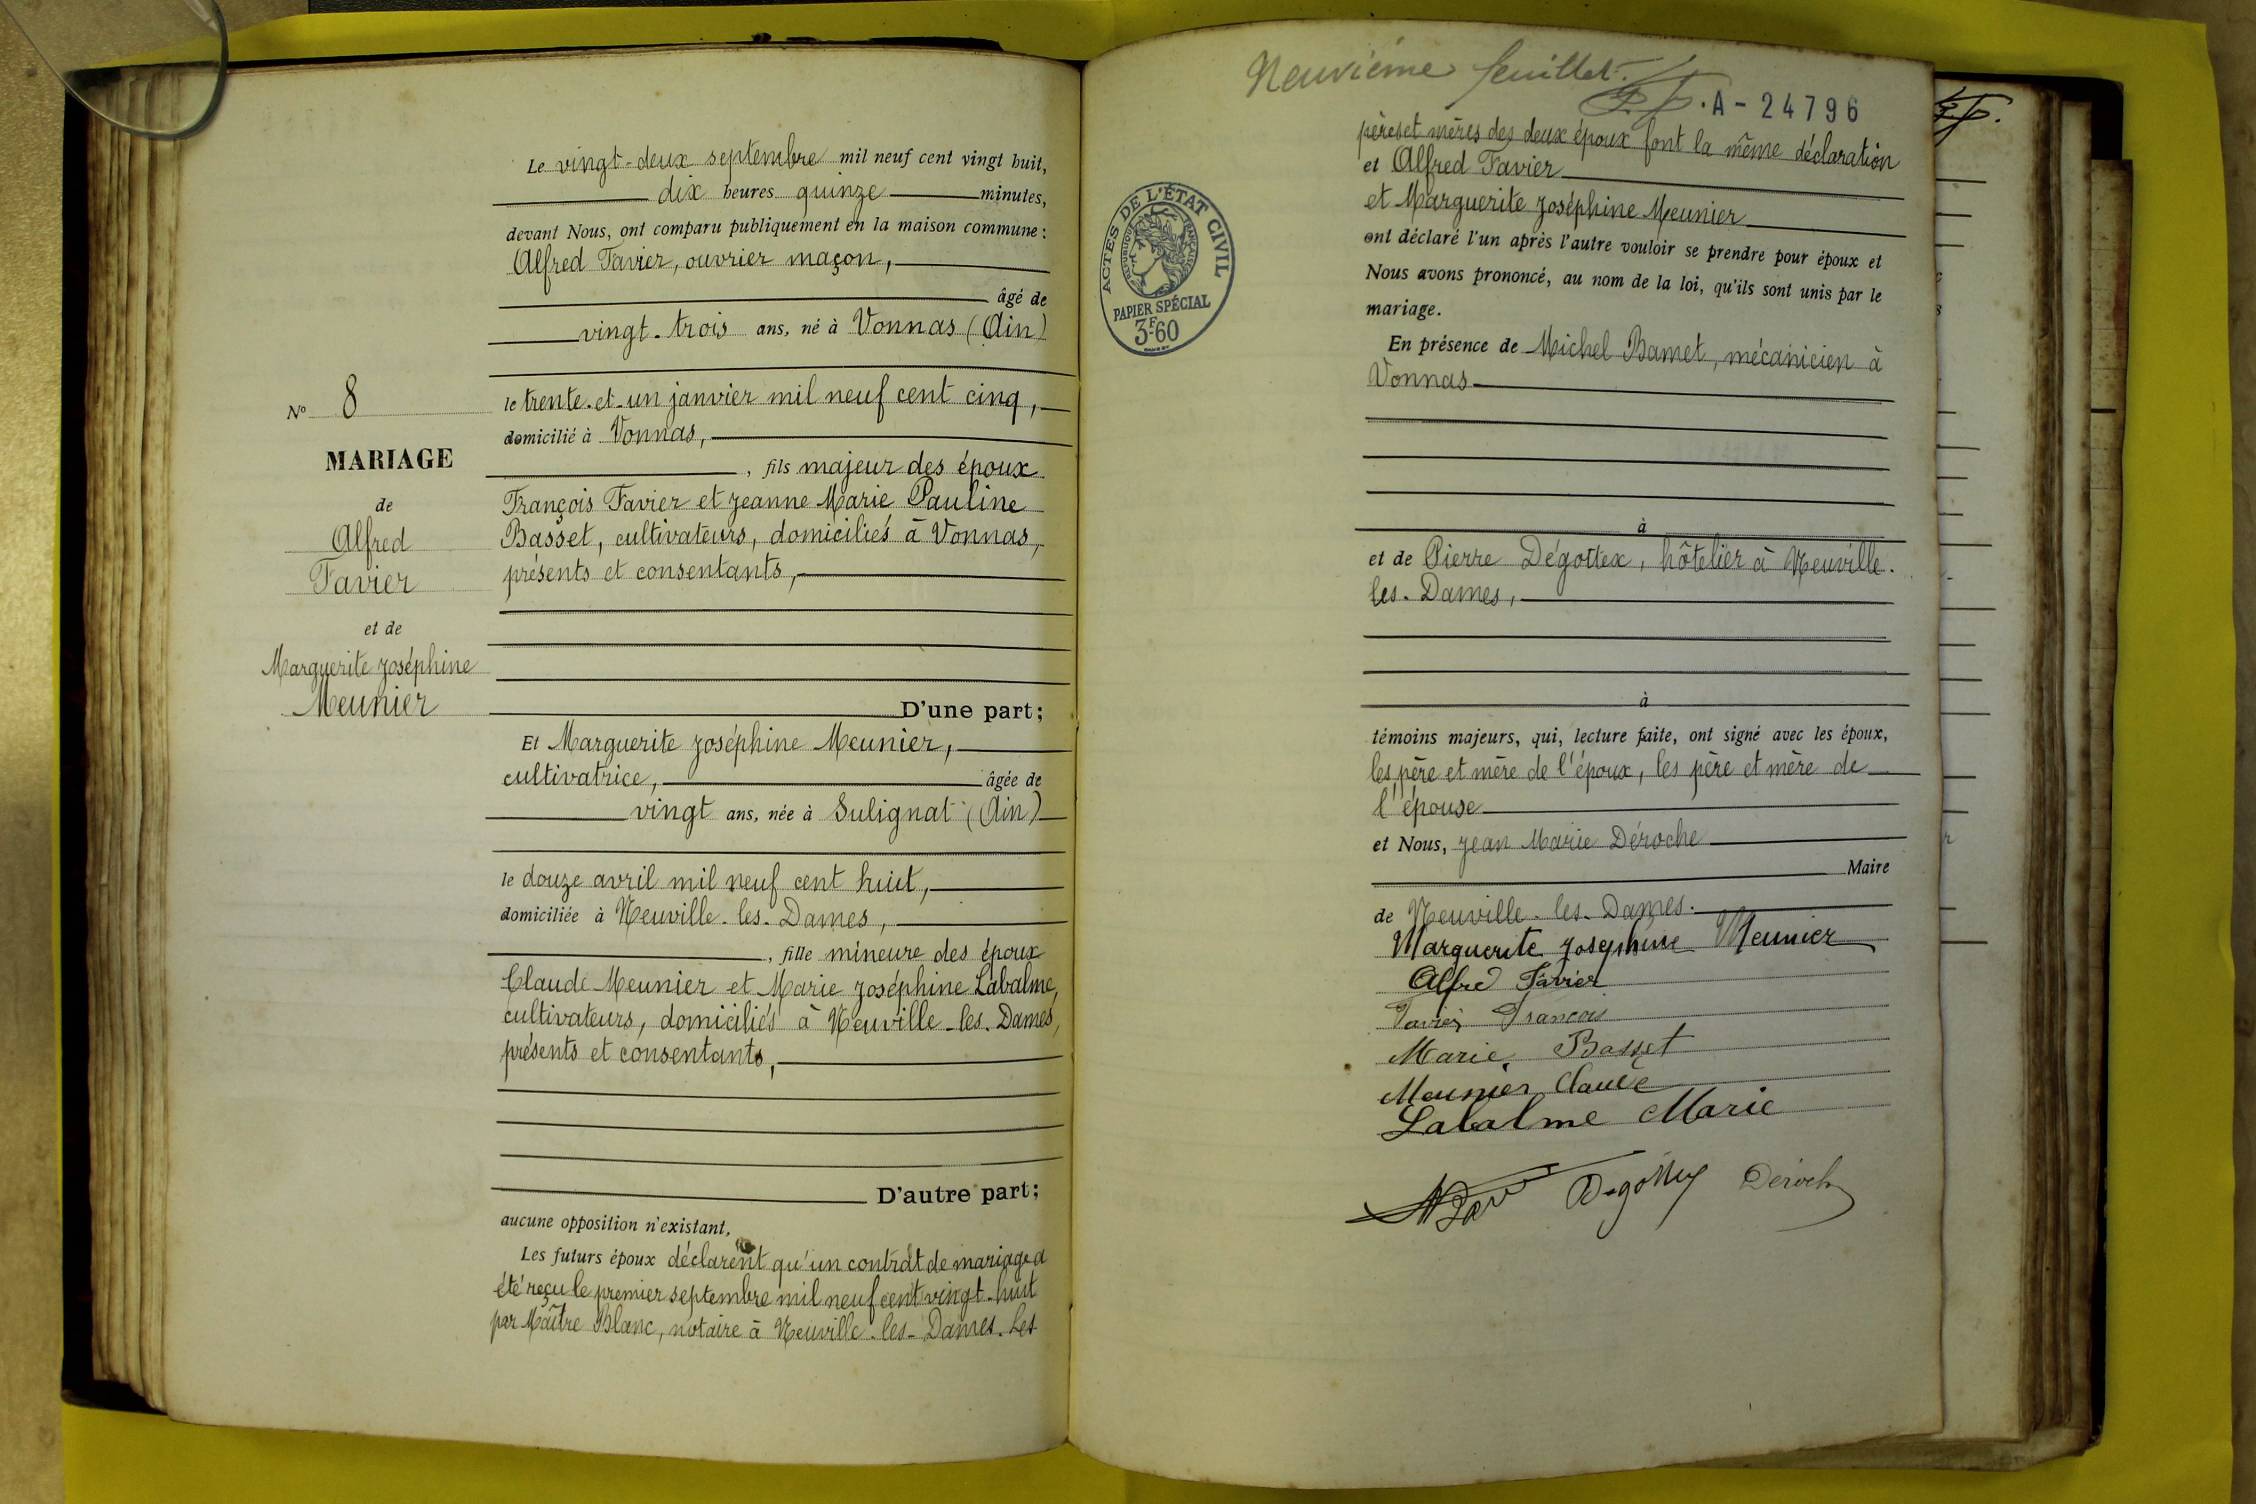 Le vingt-deux septembre mil neuf cent vingt huit,
dix heures quinze minutes,
devant Nous, ont comparu publiquement en la maison commune :
Alfred Favier, ouvrier maçon,
âgé de
vingt-trois ans, né à Vonnas (Ain)
le trente-et-un janvier mil neuf cent cinq,
domicilié à Vonnas,
, fils majeur des époux
François Favier et Jeanne Marie Pauline
Basset, cultivateurs, domiciliés à Vonnas,
présents et consentants,
D'une part ;
No 8
MARIAGE
de
Alfred
Favier
et de
Marguerite Joséphine
Meunier
Et Marguerite Joséphine Meunier,
cultivatrice, âgée de
vingt ans, née à Sulignat (Ain)
le douze avril mil neuf cent huit,
domiciliée à Neuville-les-Dames,
, fille mineure des époux
Claude Meunier et Marie Joséphine Labalme,
cultivateurs, domiciliés à Neuville-les-Dames,
présents et consentants,
D'autre part ;
aucune opposition n'existant,
Les futurs époux déclarent qu'un contrat de mariage a
été reçu le premier septembre mil neuf cent vingt-huit
par Maître Blanc, notaire à Neuville-les-Dames. Les
Neuvième feuillet.
A - 24796
ACTES DE L'ÉTAT CIVIL
RÉPUBLIQUE FRANÇAISE
PAPIER SPÉCIAL
3F60
pères et mères des deux époux font la même déclaration
et Alfred Favier
et Marguerite Joséphine Meunier
ont déclaré l'un après l'autre vouloir se prendre pour époux et
Nous avons prononcé, au nom de la loi, qu'ils sont unis par le
mariage.
En présence de Michel Bamet, mécanicien à
Vonnas
à
et de Pierre Dégottex, hôtelier à Neuville-
les-Dames,
à
témoins majeurs, qui, lecture faite, ont signé avec les époux,
les père et mère de l'époux, les père et mère de
l'épouse
et Nous, Jean Marie Déroche
Maire
de Neuville-les-Dames.
Marguerite Josephine Meunier
Alfred Favier
Favier François
Marie Basset
Meunier Claude
Labalme Marie